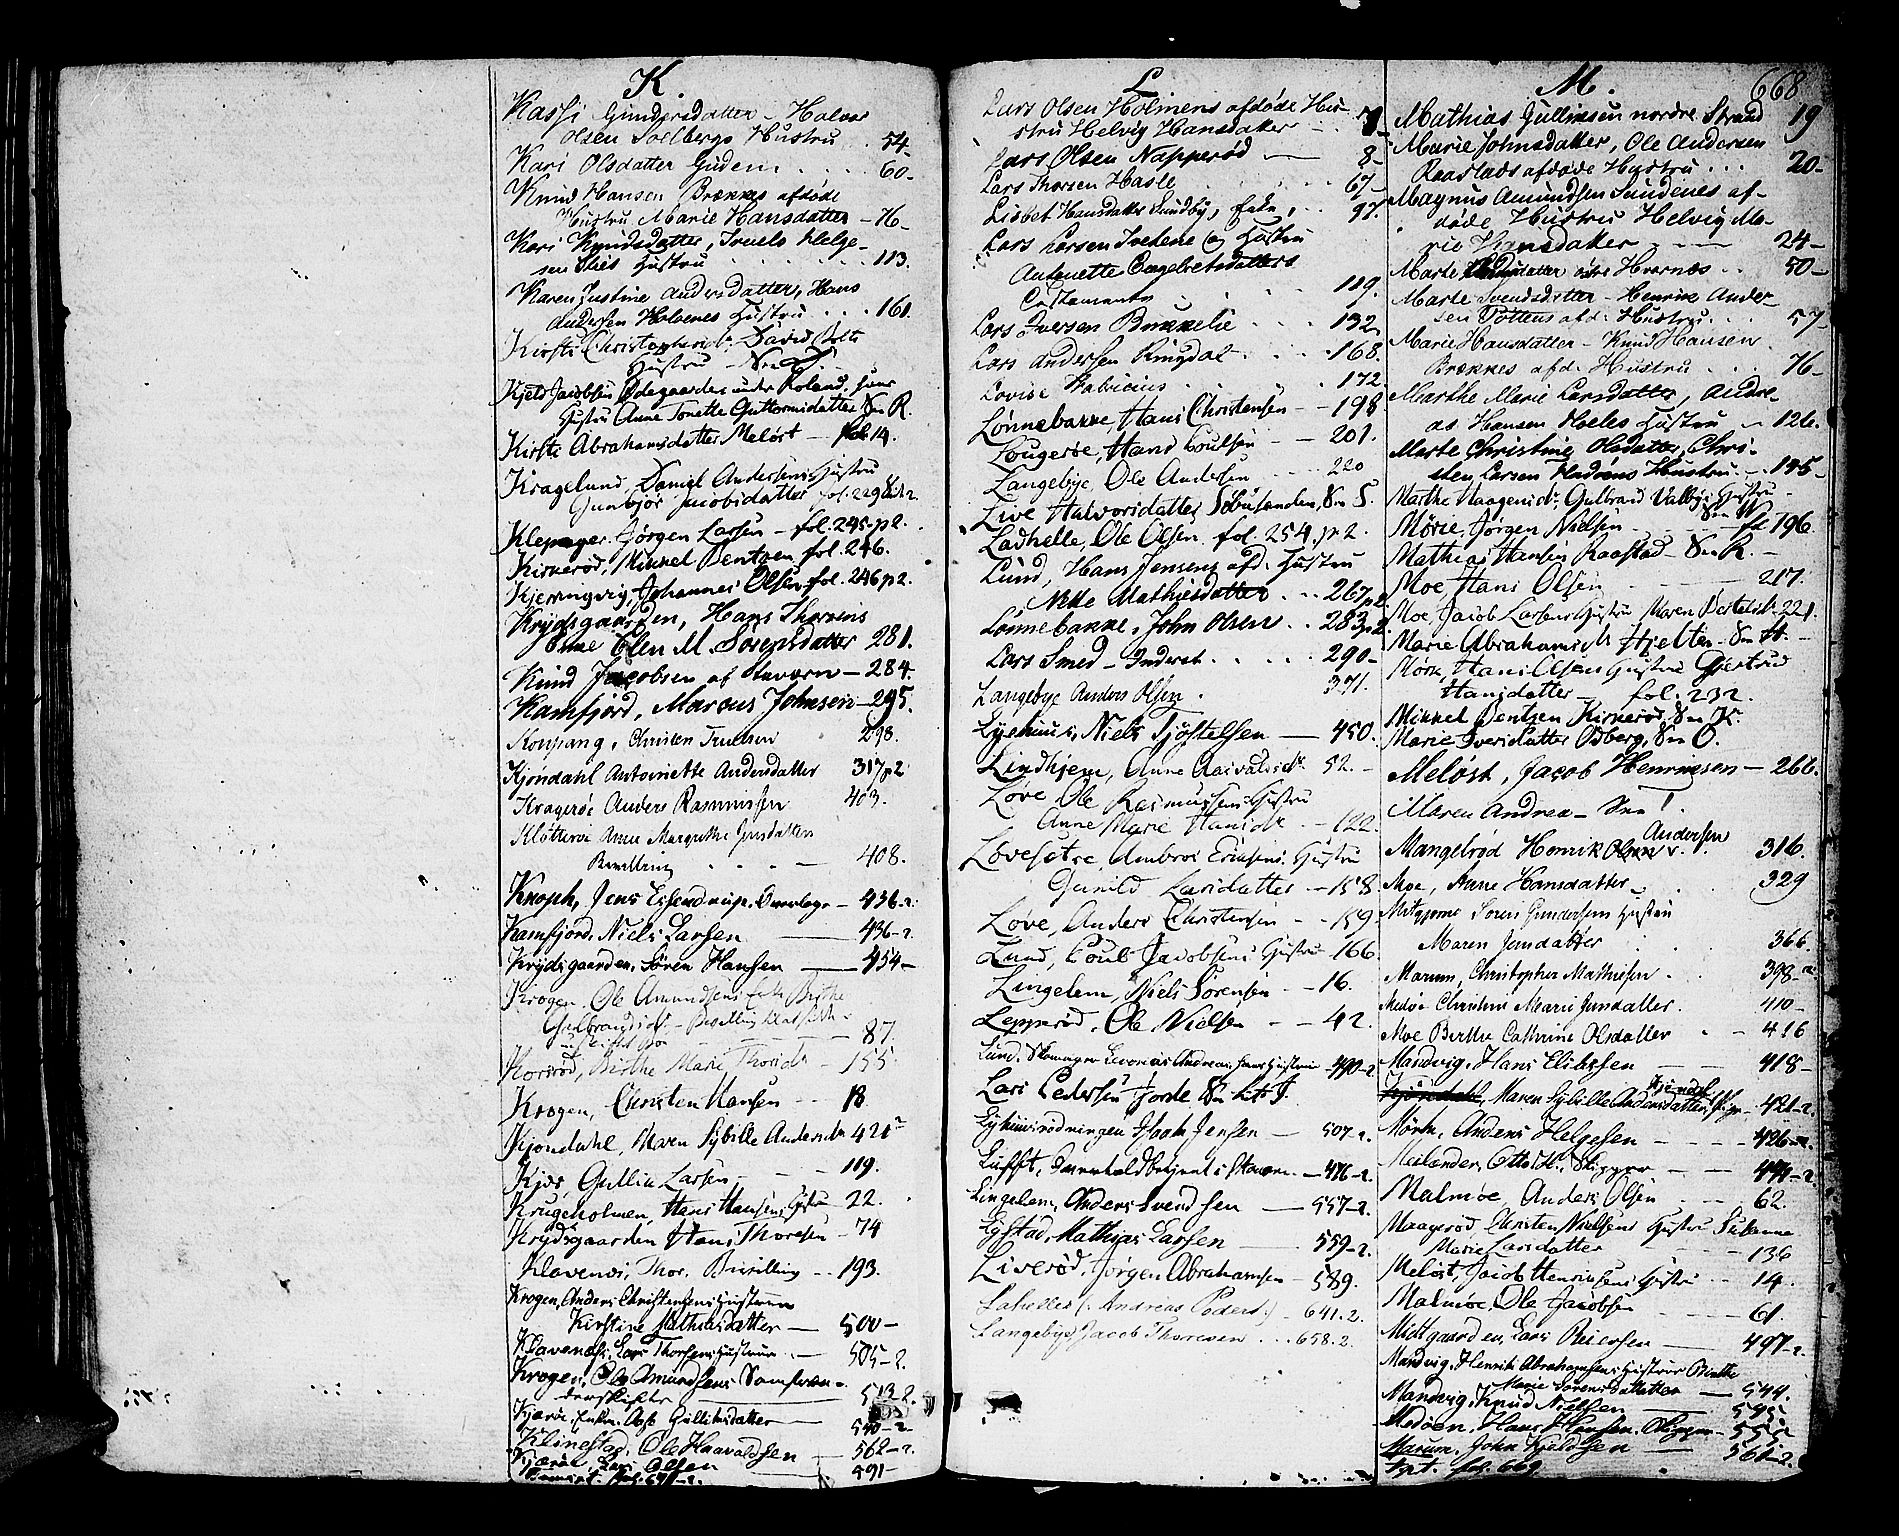 K.
Kassi Gundersdatter - Halvor
Olsen Solbergs Hustru . 54-
Kari Olsdatter Guden . . . . 60-
Knud Hansen Brekkes afdøde
Hustru Marie Hansdatter - 76-
Kari Knudsdatter, Truels Helge-
sen Hustru . . . . 113.
Karen Justine Andersdatter, Hans
Andersen Holmenes Hustru . . . 161.
Kirsti Christophersdr. David
Hustru - See
Kjeld Jacobsen Ødegaarden under Roland, hans
Hustru Anne Tonette Guttormsdatter See R.
Kirsti Abrahamsdatter Meløst - fol. 14.
Kragelund, Daniel Andersens Hustru
Gunbjør Jacobsdatter fol. 229
Klepager, Jørgen Larsen - fol. 245 p2.
Kirkerød, Mikkel Bentsen fol. 246.
Kjerringvig, Johannes Olsen fol. 246 p2.
Krydsgaarden, Hans Thoresens
Enke Elen M. Sørensdatter 281.
Knud Jacobsen af Staværn - 284.
Kamfjord, Marcus Johnsen - 295.
Christen Truelsen 298.
Kjøndahl Antoinette Andersdatter 317 p2
Kragerøe Anders Rasmussen 403.
Kløtterøe Anne Margrethe Jensdatter
408.
Knoph, Jens - 436-2.
Kamfjord, Niels Larsen - 436-2.
Krydsgaarden, Søren Hansen - 454-
Krogen, Ole Amundsens Enke Birthe
Gulbrandsdr.
87.
Korsrød, Birthe Marie Thorsdr. - 155.
Krogen, Christen Hansen - - 18
Kjøndahl, Maren Sybille Andersdr. 421-2
Kjær, Gullik Larsen - - 119.
Krugeholmen, Hans Hansens Hustru 22.
Krydsgaarden Hans Thoresen - 74
Klavenes, Thor, - - 193.
Krogen, Anders Christensens Hustrue
Kirstine Mathiasdatter - 500-
Klavenes, Lars Thorsens Hustrue - 505-2.
Krogen, Ole Amundsens Samfræn-
deskifte - 513-2.
Kjærøe, Enken Aase Gullichsdatter - 540-2-
Klinestad, Ole Haavaldsen - 562-2.
Kjærøe, Lars Olsen - 591-
L
Lars Olsen Holmens afdøde Hu-
stru Helvig Hansdatter - . . 7-
Lars Olsen Napperød - 8-
Lars Thorsen Hasle . . . . 67-
Lisbet Hansdatter Sundby, Enke, . . 97.
Lars Larsen Tvedene og Hustru
Antonette Engelbretsdatters
Testamente . . . . 119.
Lars Iversen Bukkelie . . . . 132.
Lars Andersen Ringdal . . . . 168.
Lovise Fabricius . . . . 172
Lønnebakke, Hans Christensen - - 198
Lougerøe, Hans Poulsen - - 201.
Langebye, Ole Andersen . . . 220
Live Halvorsdatter, See S.
Ladhelle, Ole Olsen. fol. 254. p2.
Lund, Hans Jensens afd. Hustru
Mathiesdatter . . . 267 p2
Lønnebakke, John Olsen . . 283 p2.
Lars Smed - Inderst . . . . 290-
Langebye Anders Olsen . 371.
Lyehuus, Niels Kjøstelsen - 450.
Lindhjem, Anne Haavaldsdr. 52. -
Løve, Ole Rasmussens Hustru
Anne Marie Hansdr. - 122.
Løvesetre Ambros Eriksens Hustru
Gunild Larsdatter - 158.
Løve, Anders Christensen - - 159
Lund, Poul Jacobsens Hustru 166.
Lingelem, Niels Sørensen - - 16.
Lepperød, Ole Nielsen - - 42.
Lund, Skomager Andreas, hans Hustru - 490-2
Lars Pedersen Jorde See Litr J.
Lyhuusrødningen Isaak Jensen - 507-2.
Lufft, - 476-2.
Lingelem, Anders Svendsen - 557-2.
Lystad, Mathias Larsen - 559-2.
Liverød, Jørgen Abrahamsen - 589.
Lahelle (: Andreas Peders:) - 641.2.
Langebye Jacob Thoresen . . . 658.2.
M. 668
Mathias Gulliksen nordre Strand 19
Marie Johnsdatter, Ole Andersen
Raastads afdøde Hustru . . . 20-
Magnus Amundsen Sundenes af-
døde Hustru Helvig Ma-
rie Hansdatter - 24-
Marte øvre Hvarnes . . 50-
Marte Svendsdatter - Henrik Ander-
sen Pottens afd. Hustru . . . 57-
Marie Hansdatter - Knud Hansen
Brekkes afd. Hustru . . . 76-
Marthe Marie Larsdatter, Andre-
as Hansen Holles Hustru - 126.
Marte Christine Olsdatter, Chri-
sten Larsen Hustru - 145-
Marthe Haagensdr, Gulbrand Valbyes Hustru -
See
Mørie, Jørgen Nielsen - - - fol 196
Mathias Hansen Raastad - See R. -
Moe, Hans Olsen - - 217.
Moe, Jacob Larsens Hustru Maren Bertelsdr. 221.
Marie Abrahamsdr. Hjelten - See H. -
Mørk, Hans Olsens Hustru Gjertrud
Hansdatter - fol. 232.
Mikkel Bentsen Kirkerød, See K.
Marie Iversdatter Odberg, See O.
Meløst, Jacob Henriksen - 266.
Maren Andrea - See
Andersen
Mangelrød Henrik Olsen . . 316.
Moe, Anne Hansdatter - . . 329
Søren Gundersens Hustru
Maren Jensdatter . . . 366.
Marum, Christopher Mathisen . . 398-2
Medøe Christine Marie Jensdatter . 410-
Moe Berthe Cathrine Olsdatter . - 416
Mandvig, Hans Ellefsen - - 418-
Kjøndahl, Maren Sybille Andersdatter - 421-2.
Mørk, Anders Helgesen - - - 426-2
Meilænder, Otto H., Skipper - - 444-2
Malmøe, Anders Olsen . - - 62.
Maagerød Christen Nielsens Hustru Susanne
Marie Larsdatter - - 136
Meløst, Jacob Henriksens Hustru - - 14.
Malmøe, Ole Jacobsen - - 61.
Midtgaarden, Lars Reiersen - 497-2.
Mandvig, Henrik Abrahamsens Hustrue Birthe
Marie Sørensdatter - 544.
Mandvig, Knud Nielsen - 545.
Medøen, Hans Hansen, Skipper - 555
Marum, John Kjeldsen - 561-2.
fol. 669